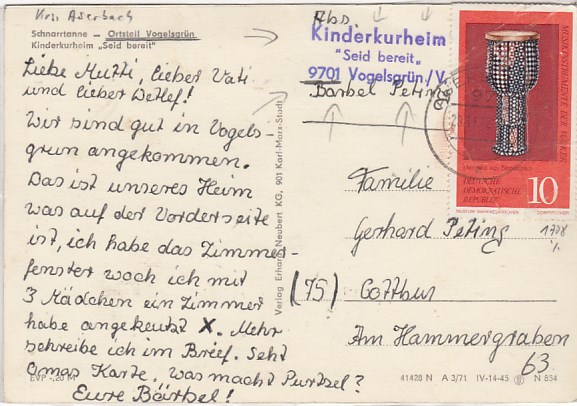 Krs. Auerbach
Schnarrtanne — Ortsteil Vogelsgrün
Kinderkurheim „Seid bereit"
Liebe Mutti, lieber Vati
und lieber Detlef!
Wir sind gut in Vogels-
grün angekommen.
Das ist unseres Heim
was auf der Vorderseite
ist, ich habe das Zimmer-
fenster woch ich mit
3 Mädchen ein Zimmer
habe angekeutzt X. Mehr
schreibe ich im Brief. Seht
Omas Karte, was macht Purtsel?
Eure Bärbel!
EVP -,20 M
Verlag Erhard Neubert KG, 901 Karl-Marx-Stadt
Abs
Kinderkurheim
„Seid bereit„
9701 Vogelsgrün/V.
Bärbel Peting
MUSIKINSTRUMENTE DER VÖLKER
DEUTSCHE
DEMOKRATISCHE
REPUBLIK
10
Familie
Gerhard Peting
1708
(75) Cottbus
Am Hammergraben
63
41428 N A 3/71 IV-14-45 N 834